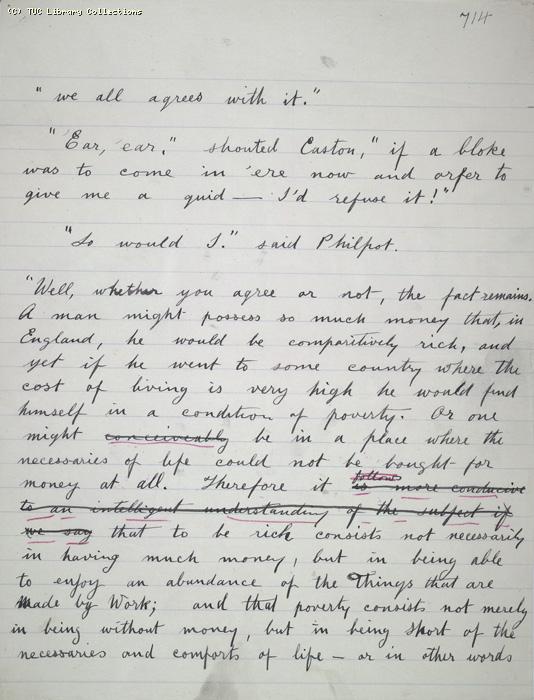 (C) TUC Library Collections
714
"we all agrees with it."
"'Ear, 'ear," shouted Easton, "if a bloke
was to come in 'ere now and orfer to
give me a quid — I'd refuse it!"
"So would I." said Philpot.
"Well, whether you agree or not, the fact remains.
A man might possess so much money that, in
England, he would be comparitively rich, and
yet if he went to some country where the
cost of living is very high he would find
himself in a condition of poverty. Or one
might conceiveably be in a place where the
necessaries of life could not be bought for
follows
money at all. Therefore it is more conducive
to an intelligent understanding of the subject if
we say that to be rich consists not necessarily
in having much money, but in being able
to enjoy an abundance of the Things that are
made by Work; and that poverty consists not merely
in being without money, but in being short of the
necessaries and comforts of life — or in other words